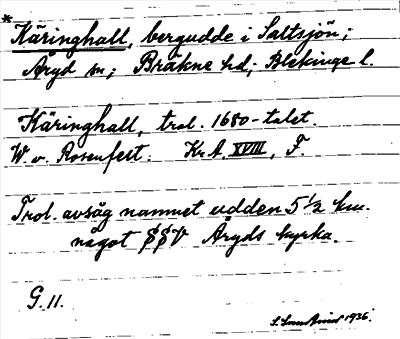 *Käringhall, bergudde i Saltsjön;
Åryd sn; Bräkne hd; Blekinge l.
Käringhall, trol. 1680-talet.
W. v. Rosenfest. Kr. A. XVIII, F.
Trol. avsåg namnet udden 5 1/2 km.
något SSV Åryds kyrka.
G. 11.
1936.